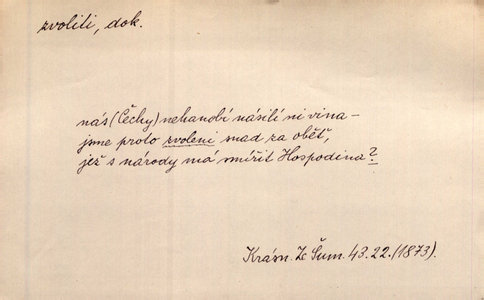 zvoliti, dok.
nás (Čechy) nehanobí násilí ni vina –
jsme proto zvoleni snad za oběť,
jež s národy má smířit Hospodina?
Krásn. Ze Šum. 43.22. (1873).